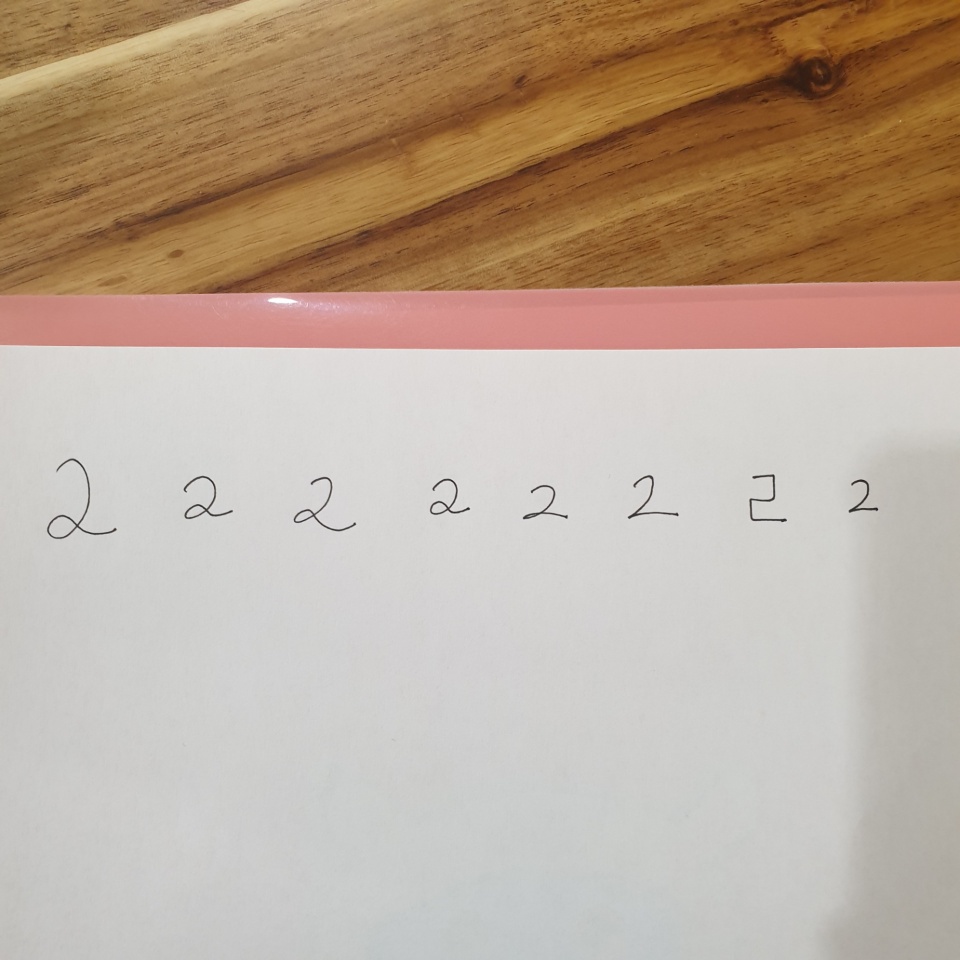 2 2 2 2 2 2 2 2